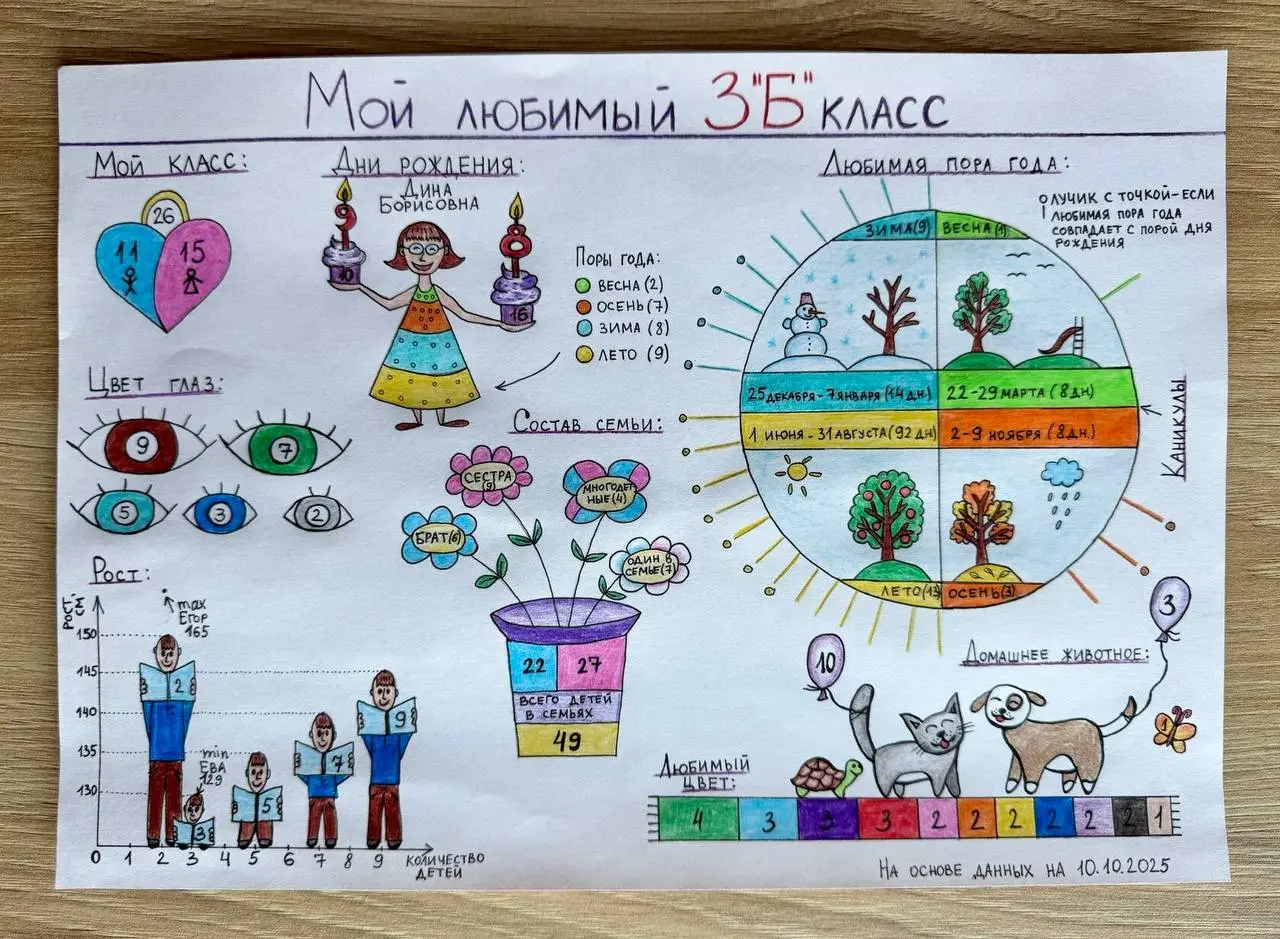 Мой любимый 3"Б" класс
Мой класс:
26
11
15
Дни рождения:
Дина
Борисовна
9
8
10
16
Поры года:
Весна (2)
Осень (7)
Зима (8)
Лето (9)
Любимая пора года:
Лучик с точкой - если
любимая пора года
совпадает с порой дня
рождения
Зима (9)
Весна (1)
25 декабря - 7 января (14 дн)
22 - 29 марта (8 дн)
1 июня - 31 августа (92 дн)
2 - 9 ноября (8 дн.)
Лето (13)
Осень (3)
Каникулы
Цвет глаз:
9
7
5
3
2
Состав семьи:
Сестра
(9)
Многодет-
ные (4)
Брат (6)
Один в
семье (7)
22
27
Всего детей
в семьях
49
Рост:
Рост,
см,
150
145
140
135
130
max
Егор
165
min
Ева
129
2
3
5
7
9
0 1 2 3 4 5 6 7 8 9
Количество
детей
Домашнее животное:
10
3
1
1
Любимый
цвет:
4 3 3 3 2 2 2 2 2 2 1
На основе данных на 10.10.2025